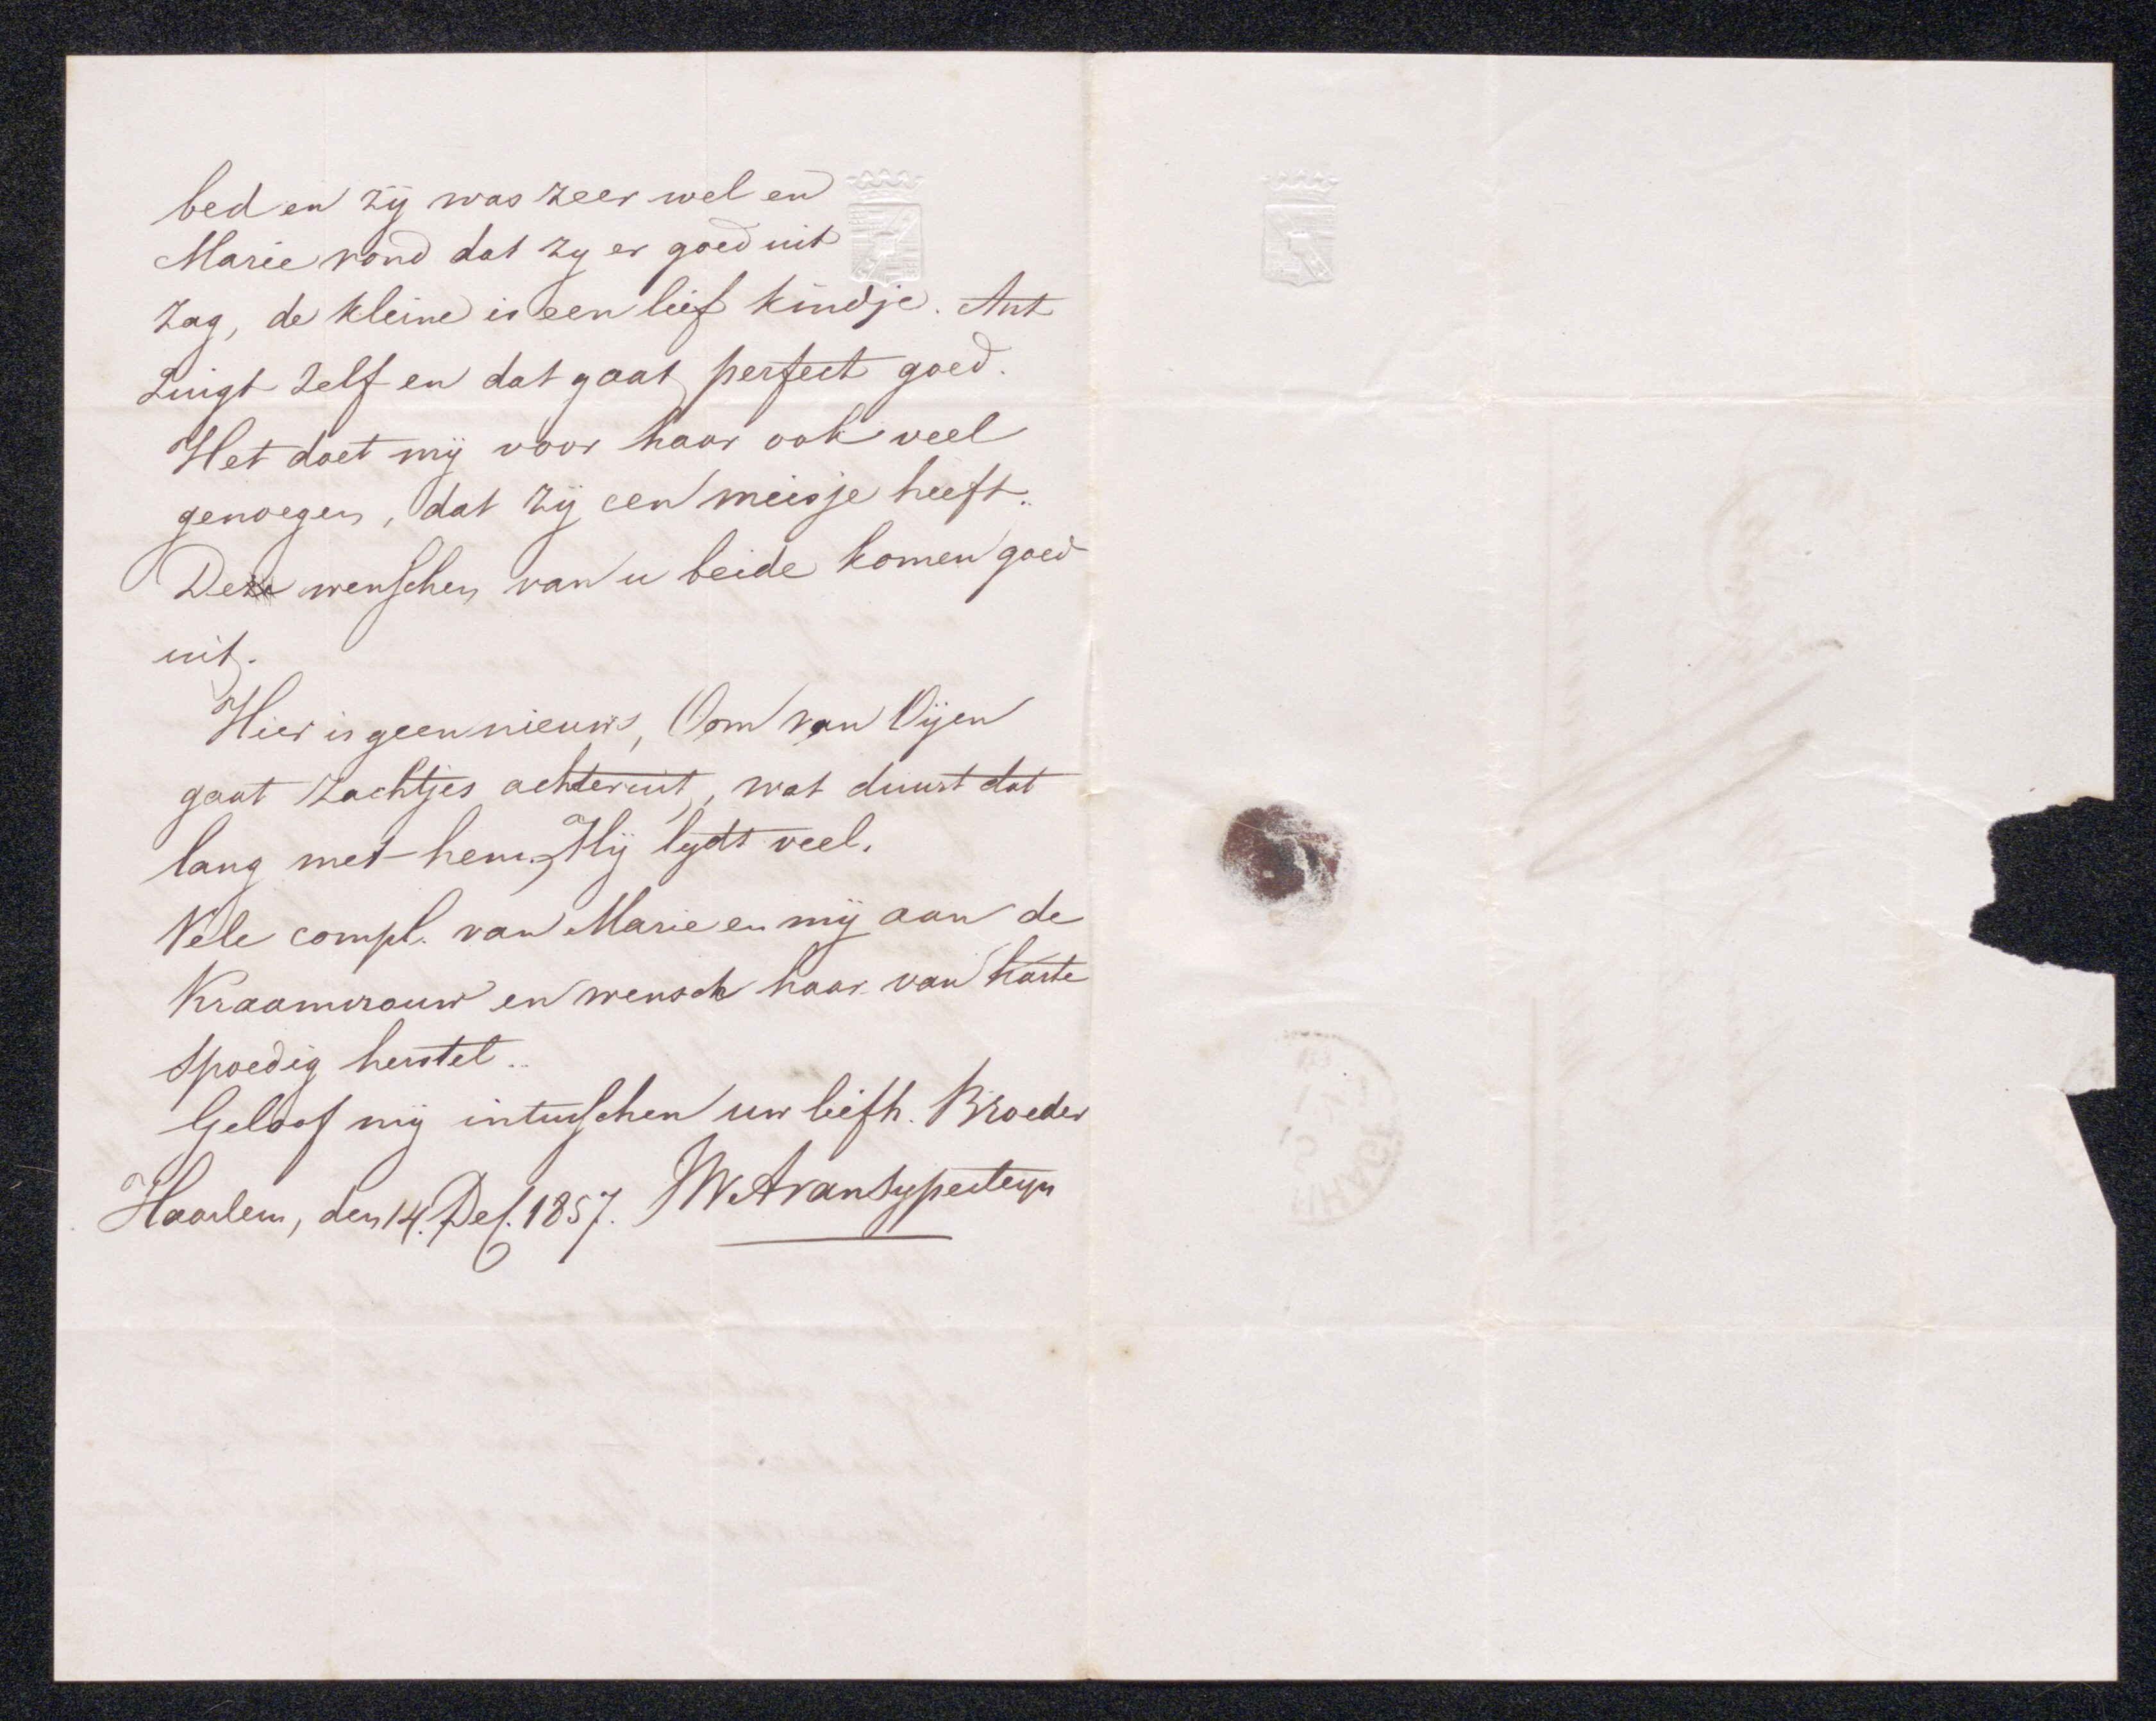 bed en zij was zeer wel en
Marie vond dat zy er goed uit
zag, de kleine is een lief kindje. Ant
zuigt zelf en dat gaat perfect goed.
Het doet mij voor haar ook veel
genoegen, dat zij een meisje heeft.
Deze wenschen van u beide komen goed
uit.
Hier is geen nieuws, Oom van Oijen
gaat zachtjes achteruit, wat duurt dat
lang met hem. Hij lydt veel.
Vele compl. van Marie en mij aan de
Kraamvrouw en wensch haar van harte
spoedig herstel.
Geloof mij intusschen uw liefh. Broeder
Haarlem, den 14. Dec. 1857. JWA van Sypesteyn